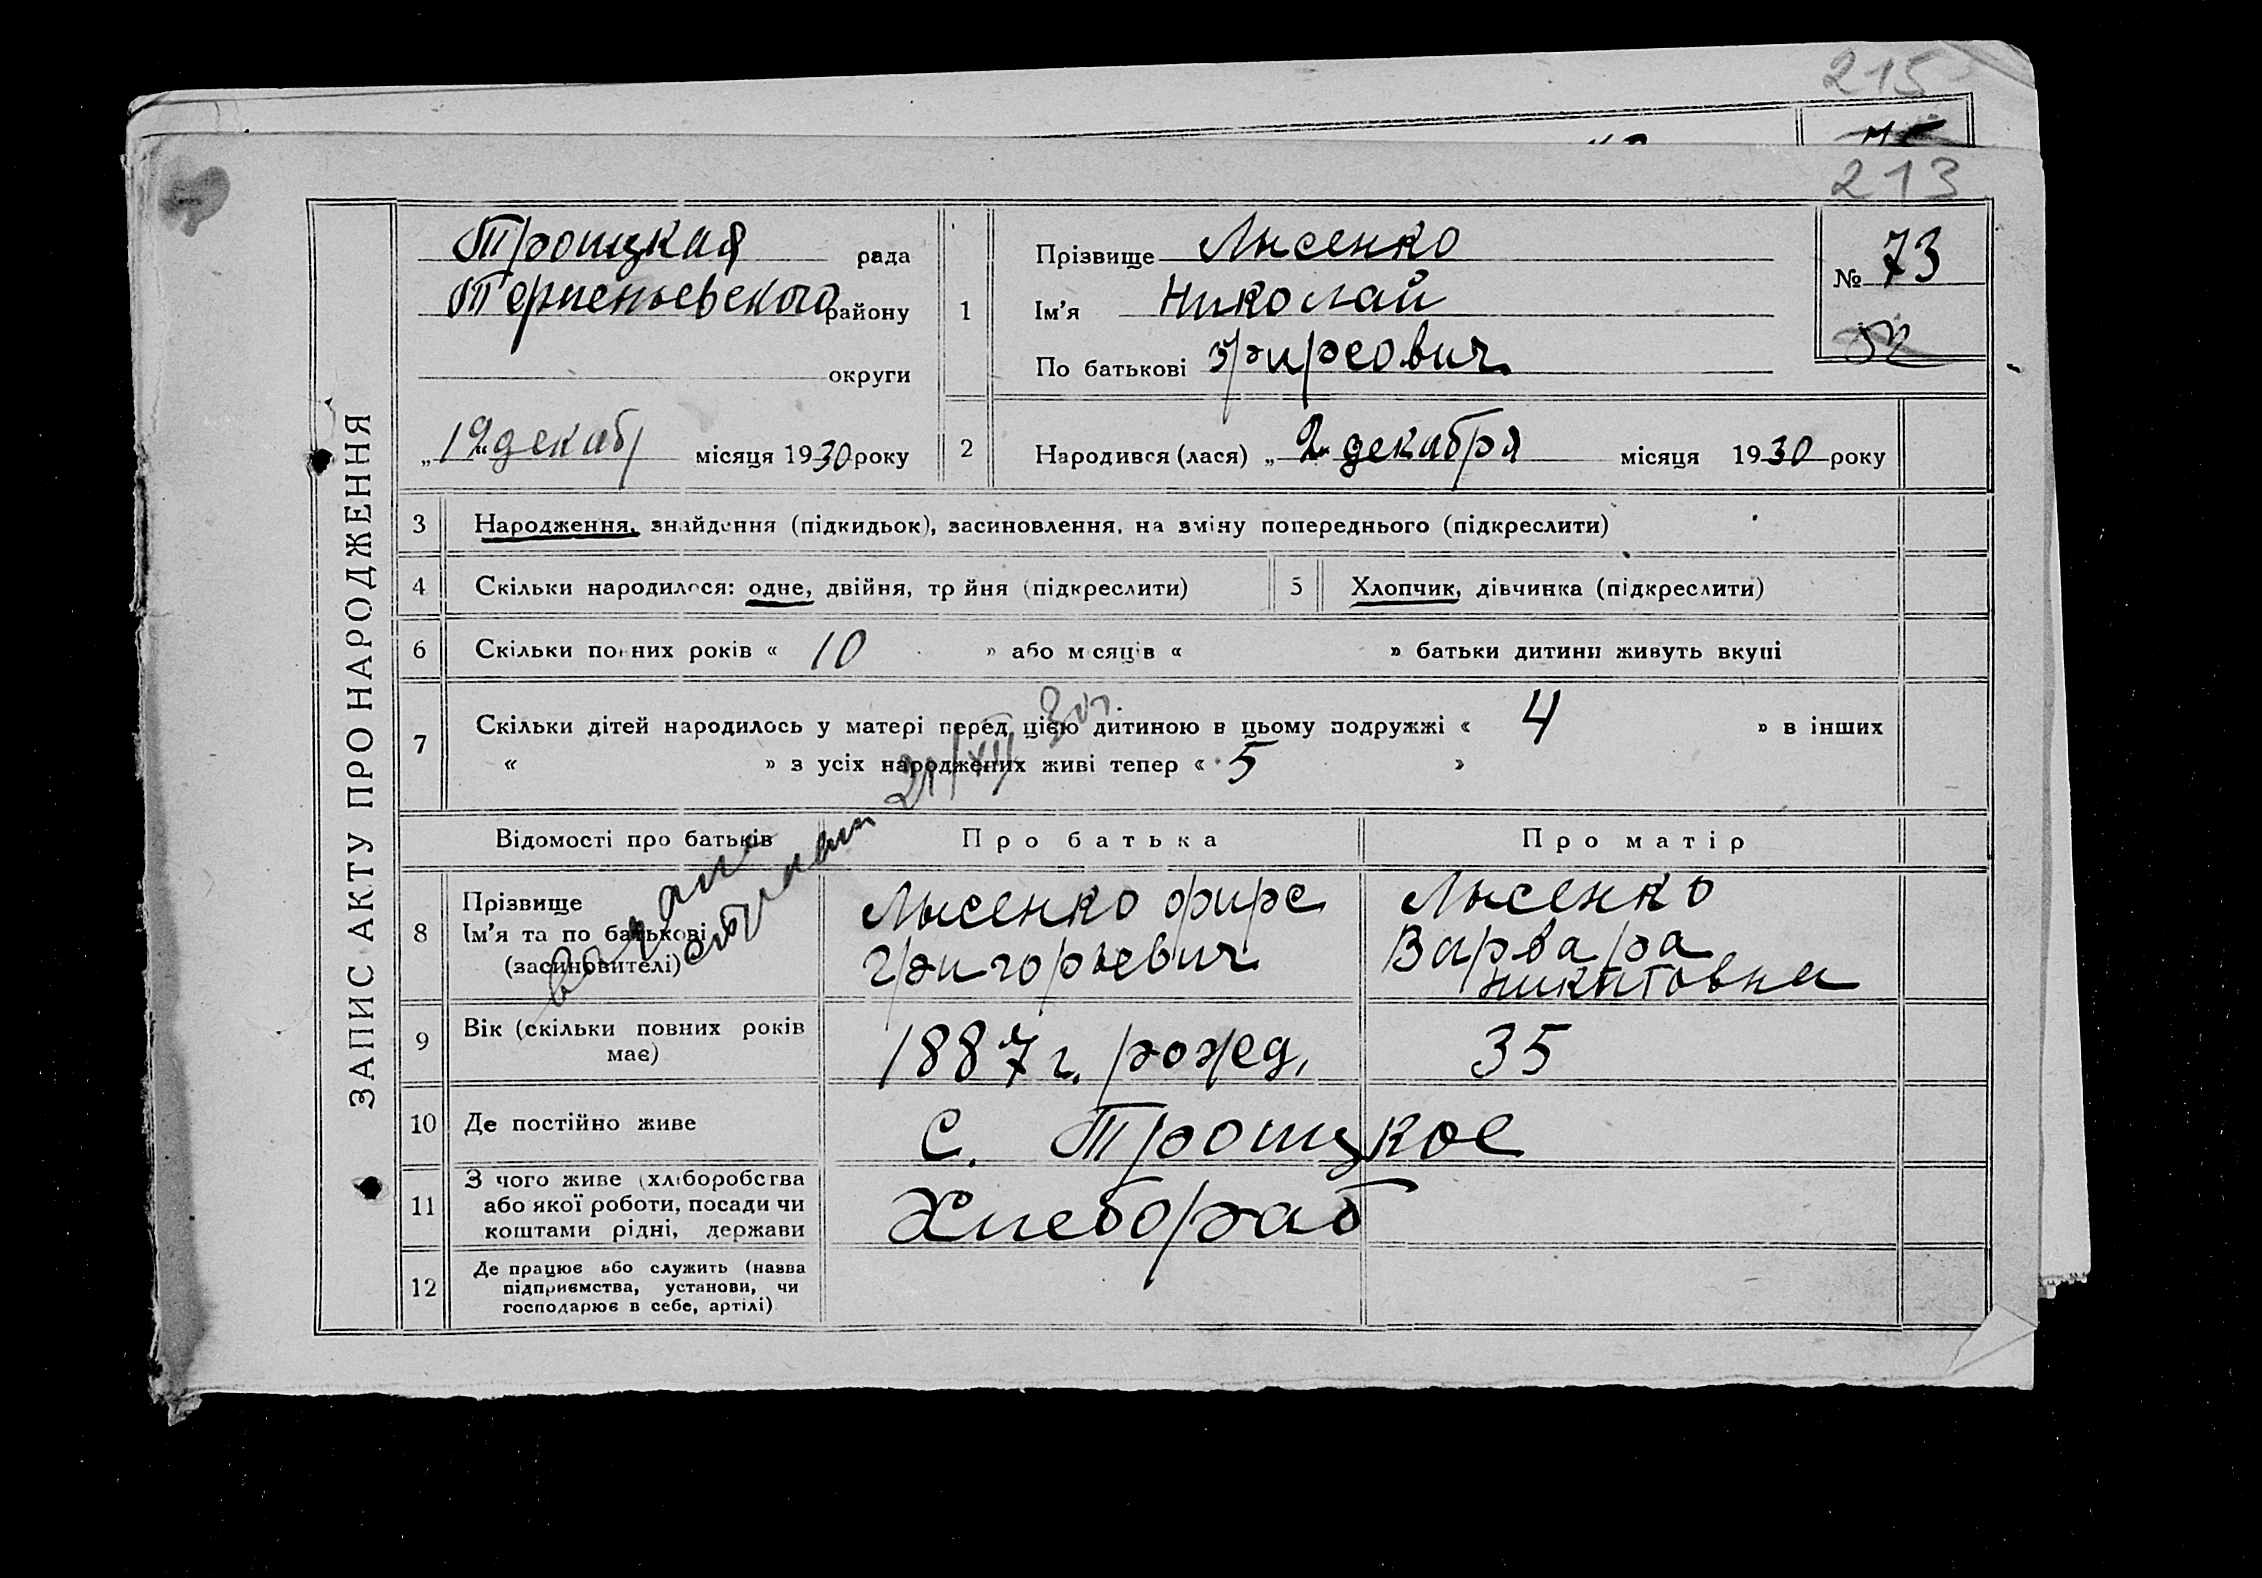 215
213
ЗАПИС АКТУ ПРО НАРОДЖЕННЯ
Троицкая рада
Терпеньевского району
округи
„19" декабр місяця 1930 року
1
Прізвище Лысенко
Ім’я Николай
По батькові Фирсович
№ 73
52
2
Народився (лася) „2 декабря місяця 1930 року
3 Народження, знайдення (підкидьок), засиновлення, на зміну попереднього (підкреслити)
4 Скільки народилося: одне, двійня, трійня (підкреслити)
5 Хлопчик, дівчинка (підкреслити)
6 Скільки повних років « 10 » або місяців « » батьки дитини живуть вкупі
7 Скільки дітей народилось у матері перед цією дитиною в цьому подружжі « 4 » в інших
« » з усіх народжених живі тепер « 5 »
21/XII 30г.
Відомості про батьків Про батька Про матір
8 Прізвище
Ім’я та по батькові
(засиновителі)
Лысенко Фирс
Григорьевич
Лысенко
Варвара
Никитовна
9 Вік (скільки повних років
має)
1887 г. рожд. 35
10 Де постійно живе с. Троицкое
11 З чого живе (хліборобства
або якої роботи, посади чи
коштами рідні, держави
Хлебораб
12 Де працює або служить (назва
підприємства, установи, чи
господарює в себе, артілі)